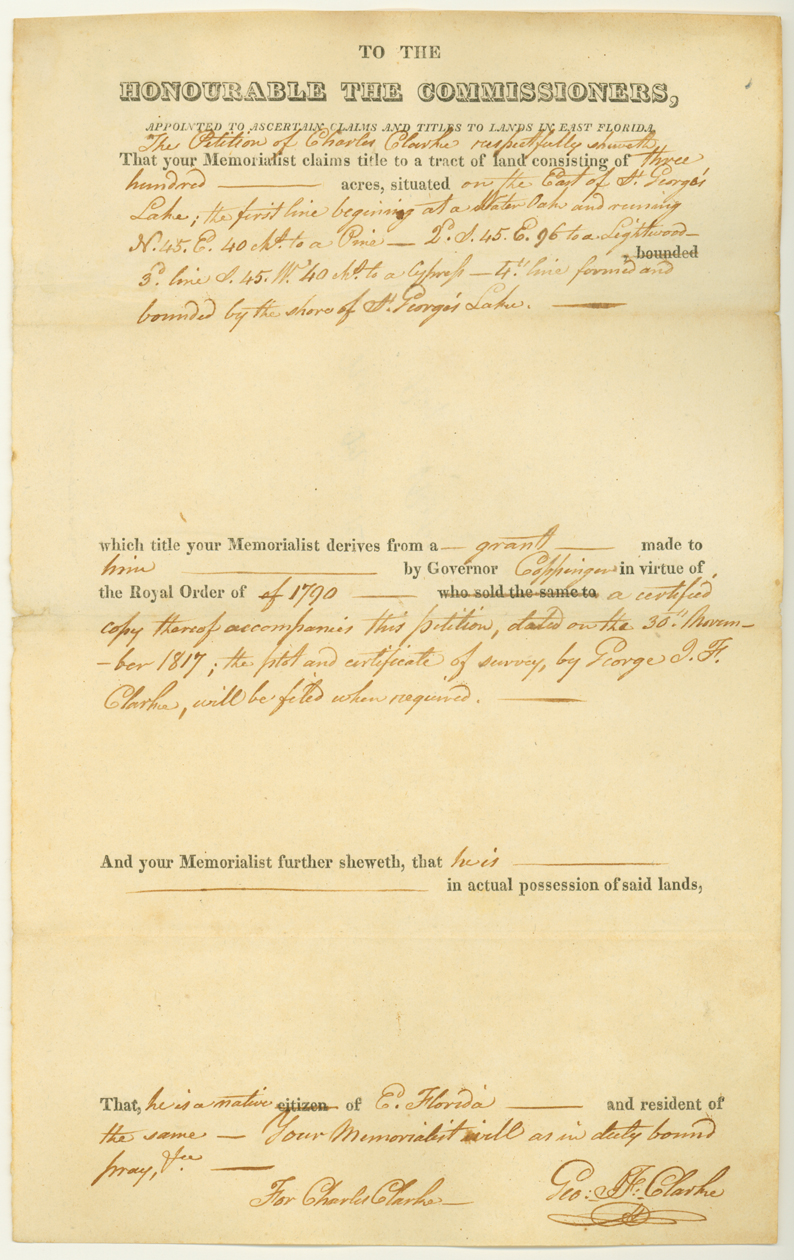 TO THE
HONOURABLE THE COMMISSIONERS,
APPOINTED TO ASCERTAIN CLAIMS AND TITLES TO LANDS IN EAST FLORIDA,
The Petition of Charles Clarke respectfully sheweth,
That your Memorialist claims title to a tract of land consisting of three
hundred acres, situated on the East of St. George's
Lake; the first line begining at a Water Oak and running
N. 45. E. 40 chs. to a Pine — 2d. S. 45. E. 96 to a Lightwood—
, bounded
3d. line S. 45. W. 40 chs. to a Cypress — 4th. line formed and
bounded by the shore of St. George's Lake. —
which title your Memorialist derives from a — grant — made to
him — by Governor Coppinger in virtue of
the Royal Order of of 1790 — who sold the same to a certified
copy thereof accompanies this petition, dated on the 30th. Novem-
-ber 1817; the plat and certificate of survey, by George J. F.
Clarke, will be filed when required. —
And your Memorialist further sheweth, that he is —
— in actual possession of said lands,
That, he is a native citizen of E. Florida — and resident of
the same — Your Memorialist will as in duty bound
pray, &ce. —
For Charles Clarke — Geo: J. F. Clarke